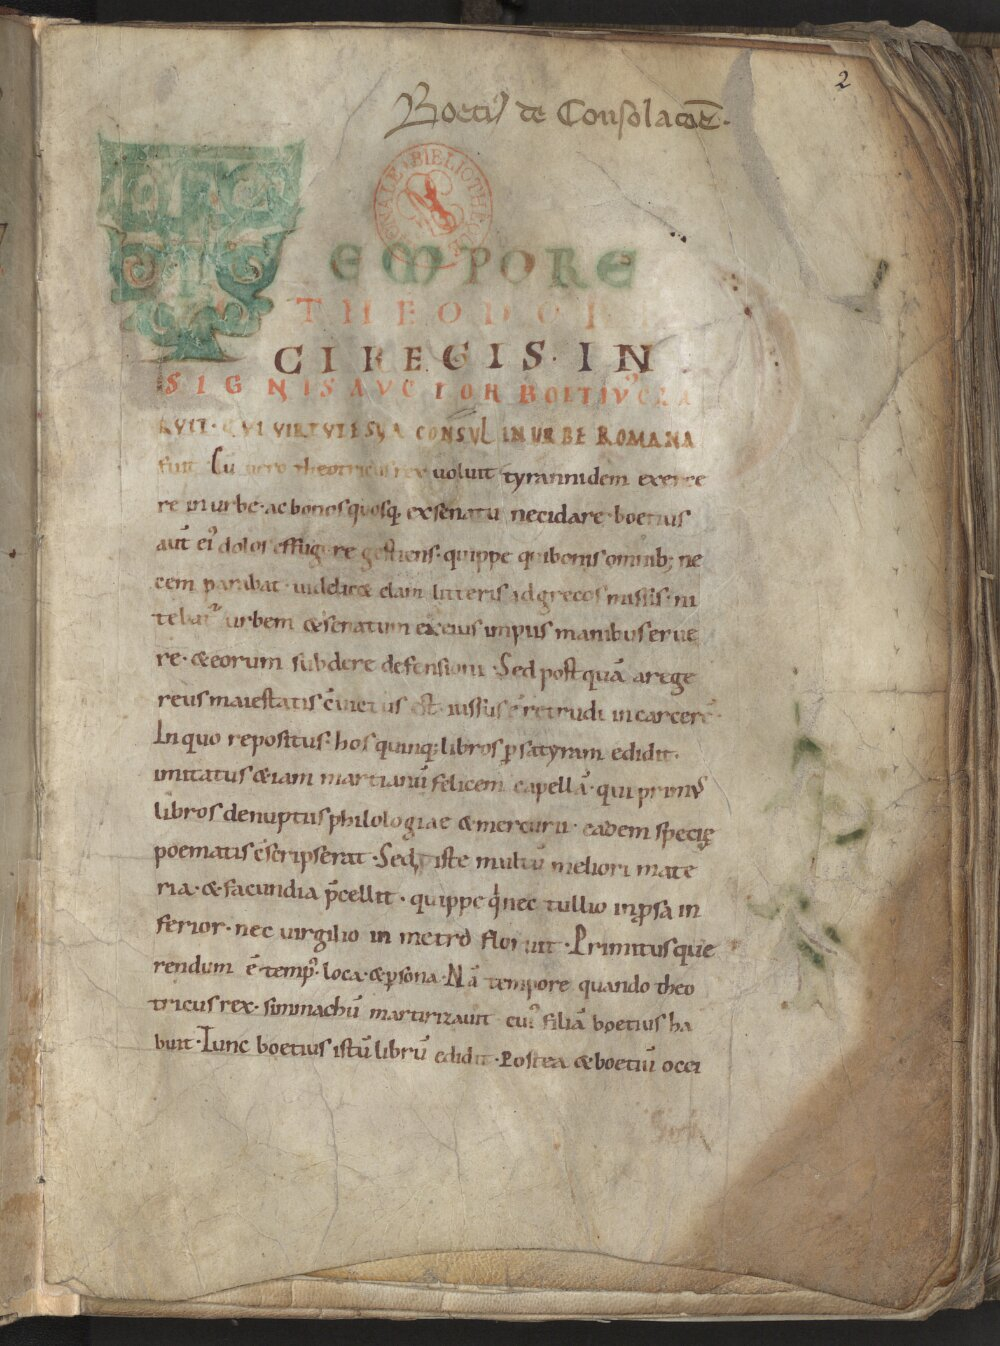 2
Boeti9 de Consolacōe.
BIBLIOTH
T
EMPORE
THEODORI
CI REGIS · IN
SIGNIS AVCTOR BOETIV᾿ CLA
RVIT · QVI VIRTVTE SVA CONSVL IN VRBE ROMANA
fuit Cū uero theotricus rex voluit tyrannidem exerce
re in urbe · ac bonos quosq; ex senatu necidare · boetius
aut̄ ei᾿ dolos effugere gestiens · quippe qui bonis omnib; ne
cem parabat · uidelic& clam litteris ad grecos missis · ni
tebat᾿ urbem & senatum ex eius impiis manibus erue
re · & eorum subdere defensioni · Sed postquā a rege
reus maiestatis c̄uictus est · iussus ē retrudi in carcerē ·
In quo repositus · hos quinq; libros p satyram edidit ·
imitatus &iam martianū felicem capellā · qui prim᾿
libros de nuptiis philologiae & mercurii · eadem specię
poematis c̄scripserat · Sed iste multū meliori mate
ria · & facundia p̄cellit · quippe q nec tullio in psa in
ferior · nec uirgilio in metro floruit · Primitus que
rendum ē temp᾿ · loca · & psona · Nā tempore quando theo
tricus rex · simmachū martirizauit cui᾿ filiā boetius ha
buit · Tunc boetius istū librū edidit · Postea & boetiū occi